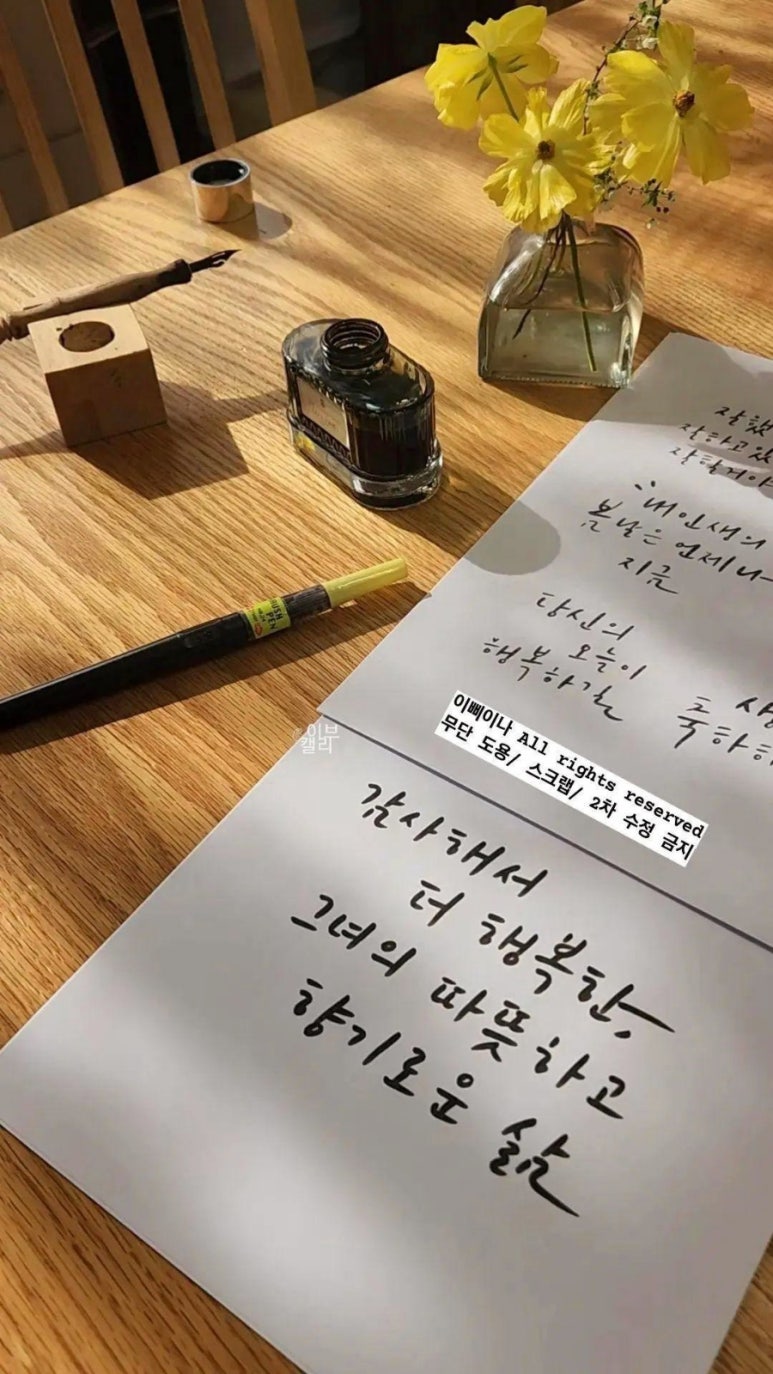 잘했
잘하고있
잘할거야
내 인생의
봄날은 언제나
지금
당신의
오늘이
행복하길
축하하
이뻬이나 All rights reserved
무단 도용/ 스크랩/ 2차 수정 금지
이브
캘리
감사해서
더 행복한,
그녀의 따뜻하고
향기로운 삶
BRUSH
PEN